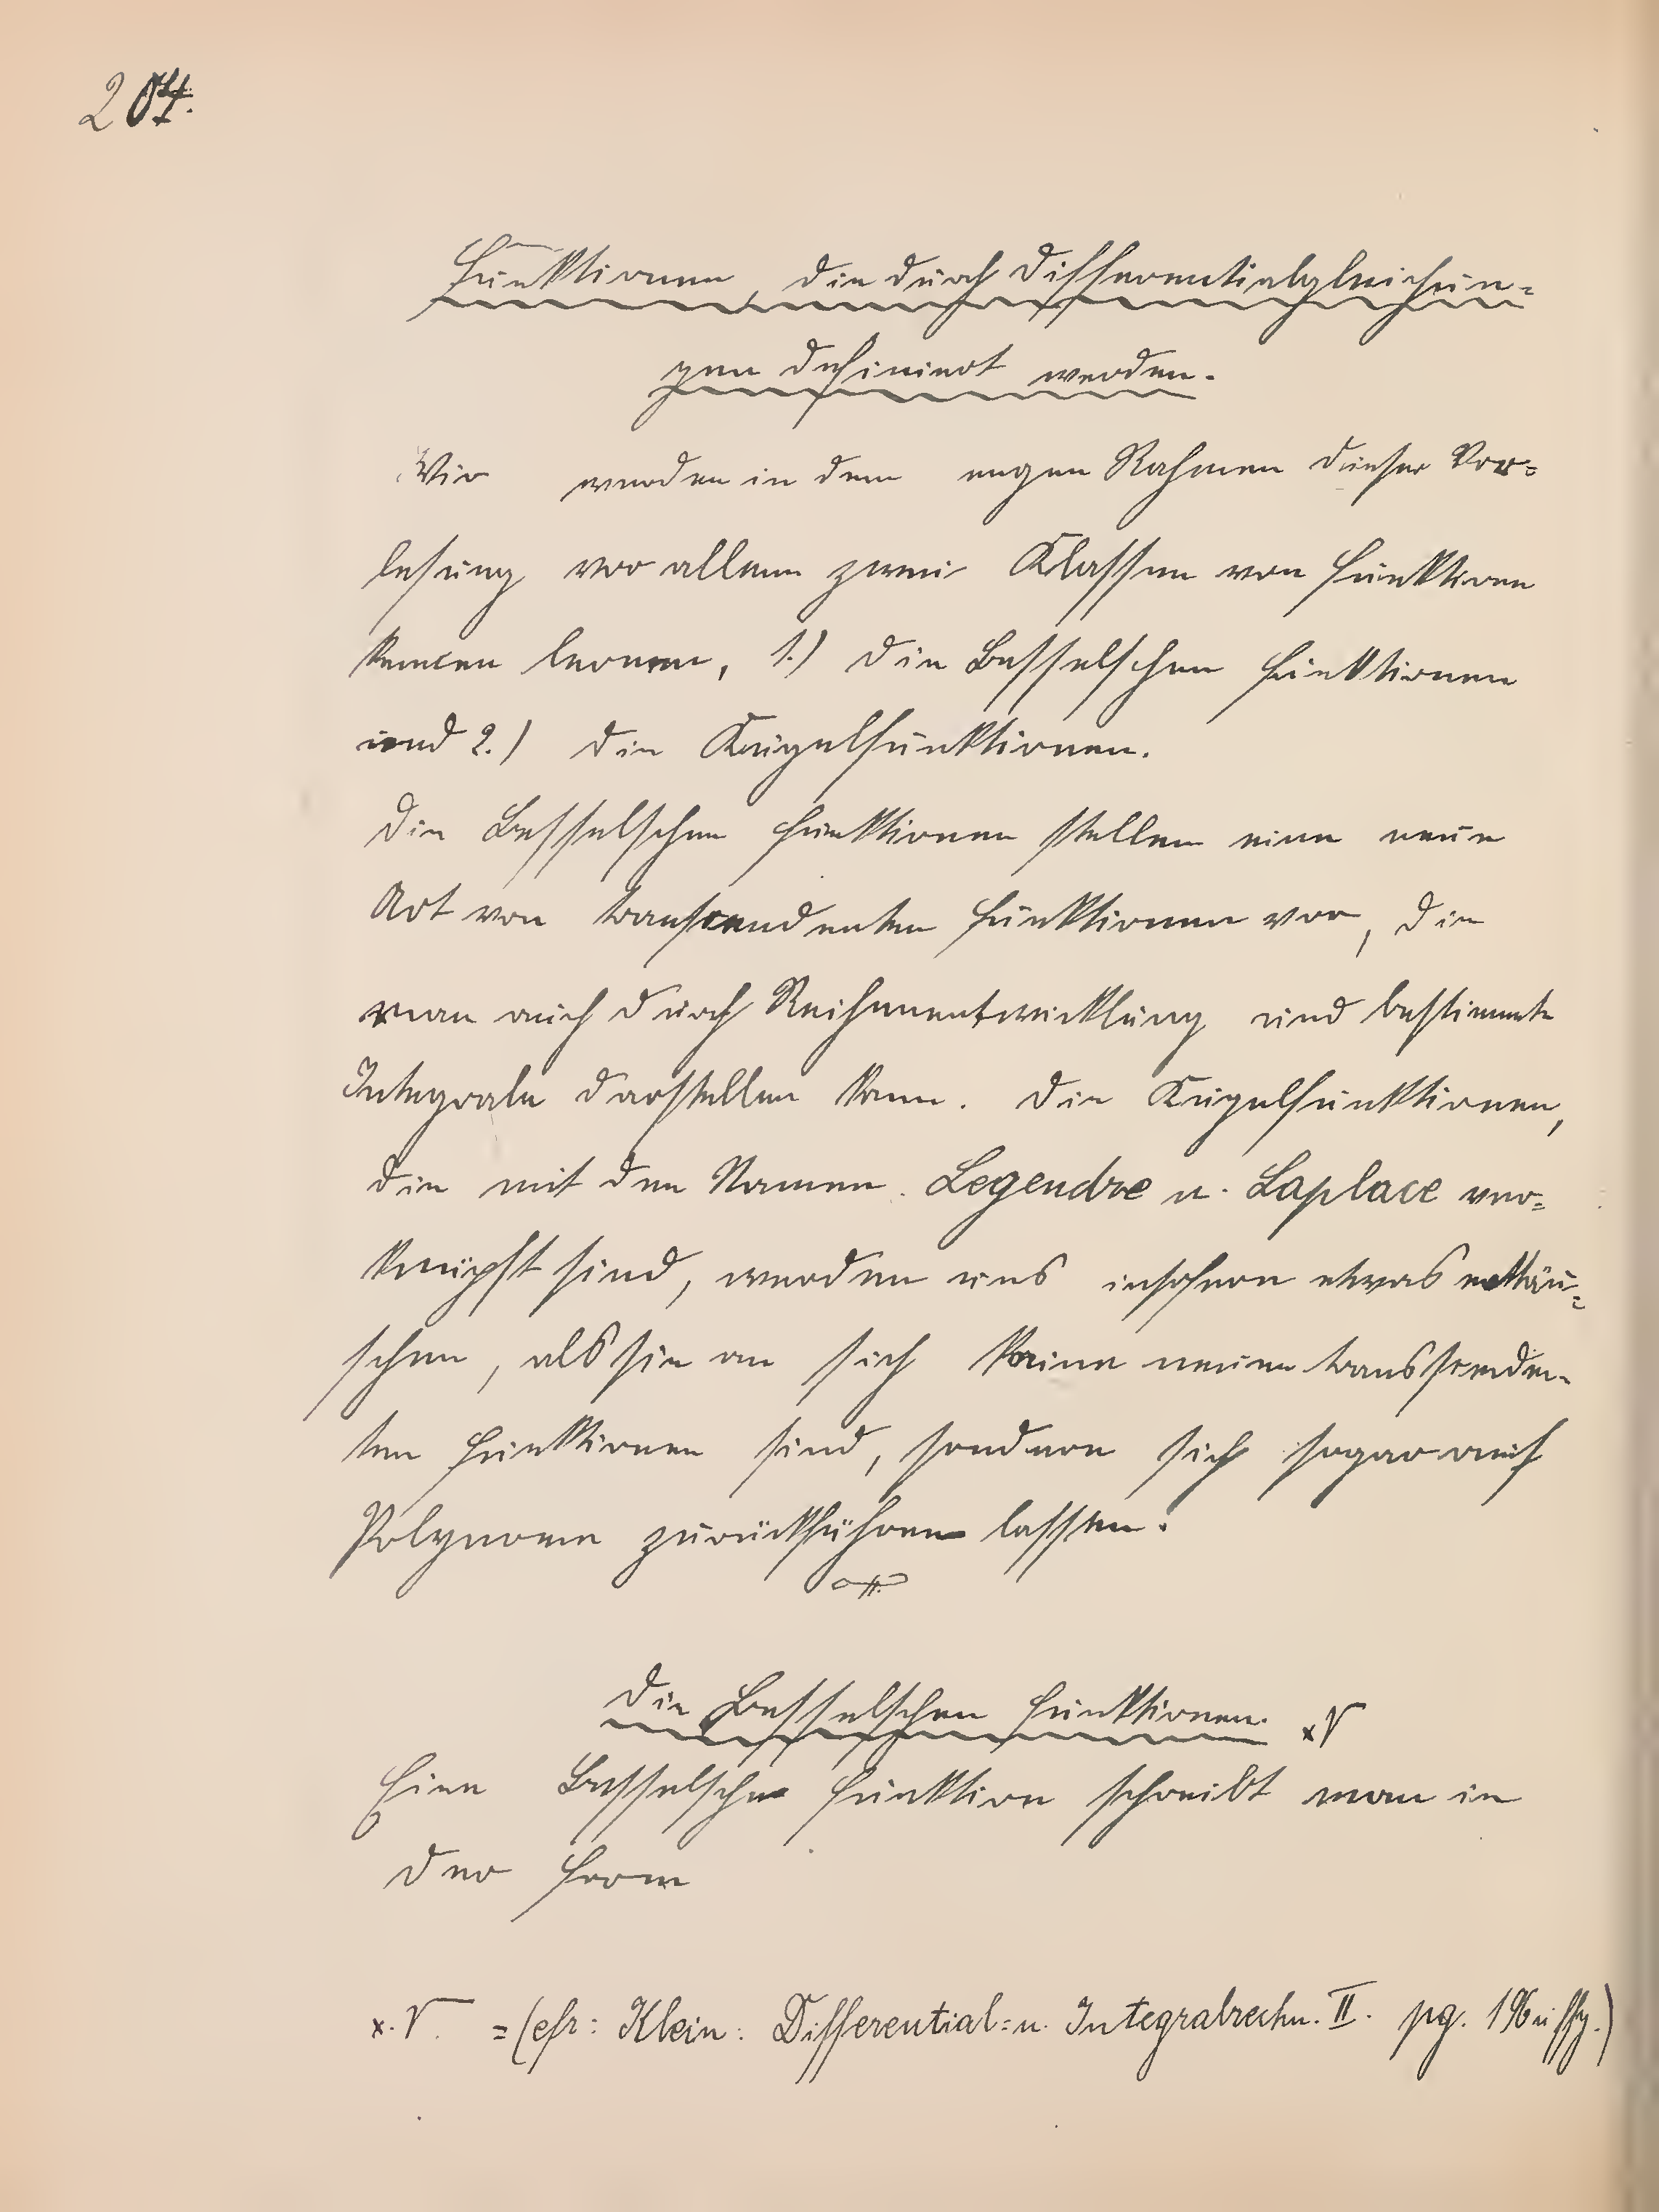 204.
Funktionen, die durch Differentialgleichun-
gen definiert werden.
Wir werden in dem engen Rahmen dieser Vor-
lesung vor allem zwei Klassen von Funktionen
kennen lernen, 1.) die Besselschen Funktionen
und 2.) die Kugelfunktionen.
Die Besselschen Funktionen stellen eine neue
Art von transcendenten Funktionen vor, die
man auch durch Reihenentwicklung und bestimmte
Integrale darstellen kann. Die Kugelfunktionen,
die mit den Namen Legendre u. Laplace ver-
knüpft sind, werden uns insofern etwas enttäu-
schen, als sie an sich keine neuen transscenden-
ten Funktionen sind, sondern sich sogar auf
Polynome zurückführen lassen.
Die Besselschen Funktionen. x.
Eine Besselsche Funktion schreibt man in
der Form
x. = (cfr: Klein: Differential- u. Integralrechn. II. pg. 196 u ffg.)